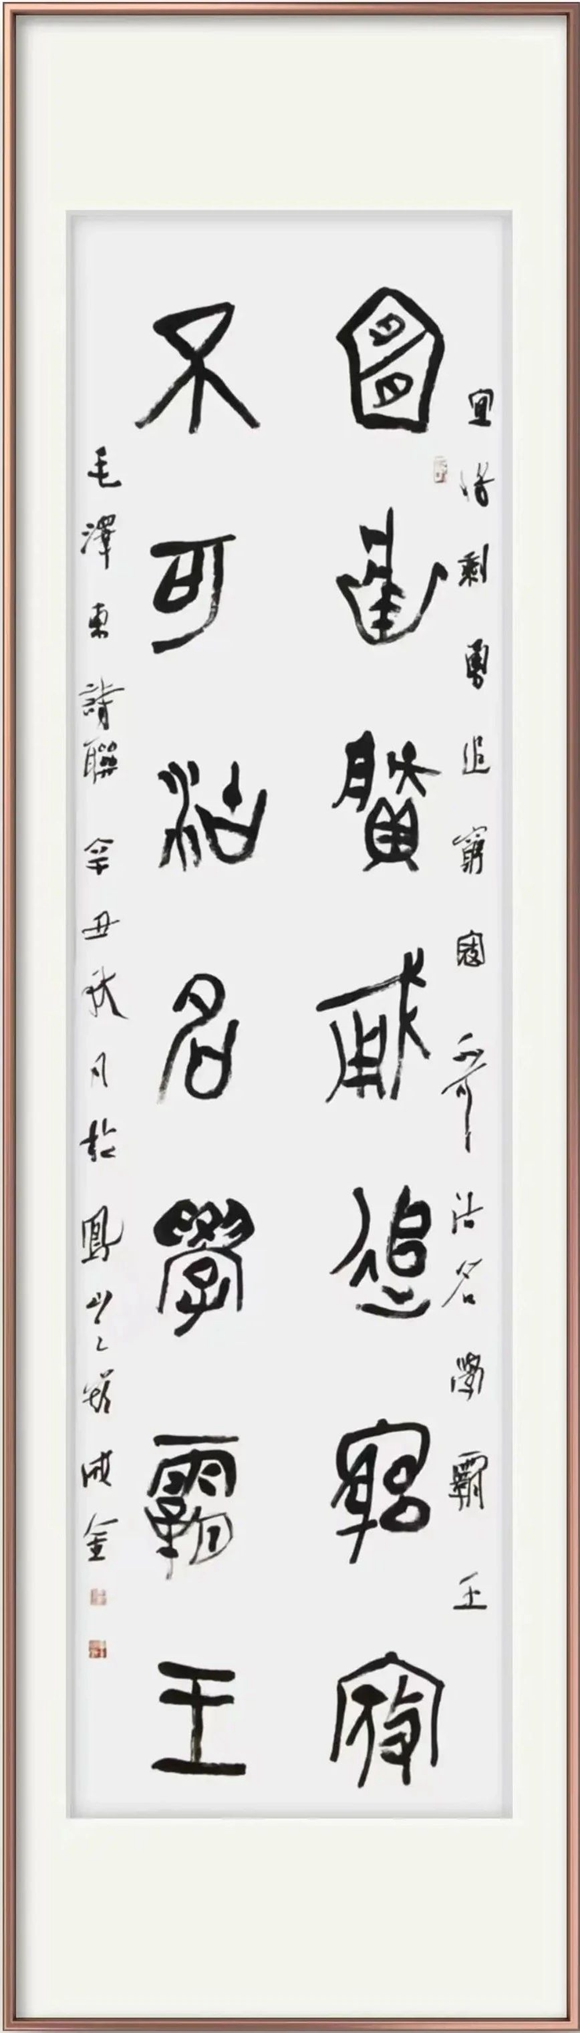 宜將剩勇追窮寇不可沽名學霸王
宜將賸勇追窮寇
不可沽名學霸王
毛澤東詩聯辛丑秋月於鳳成金